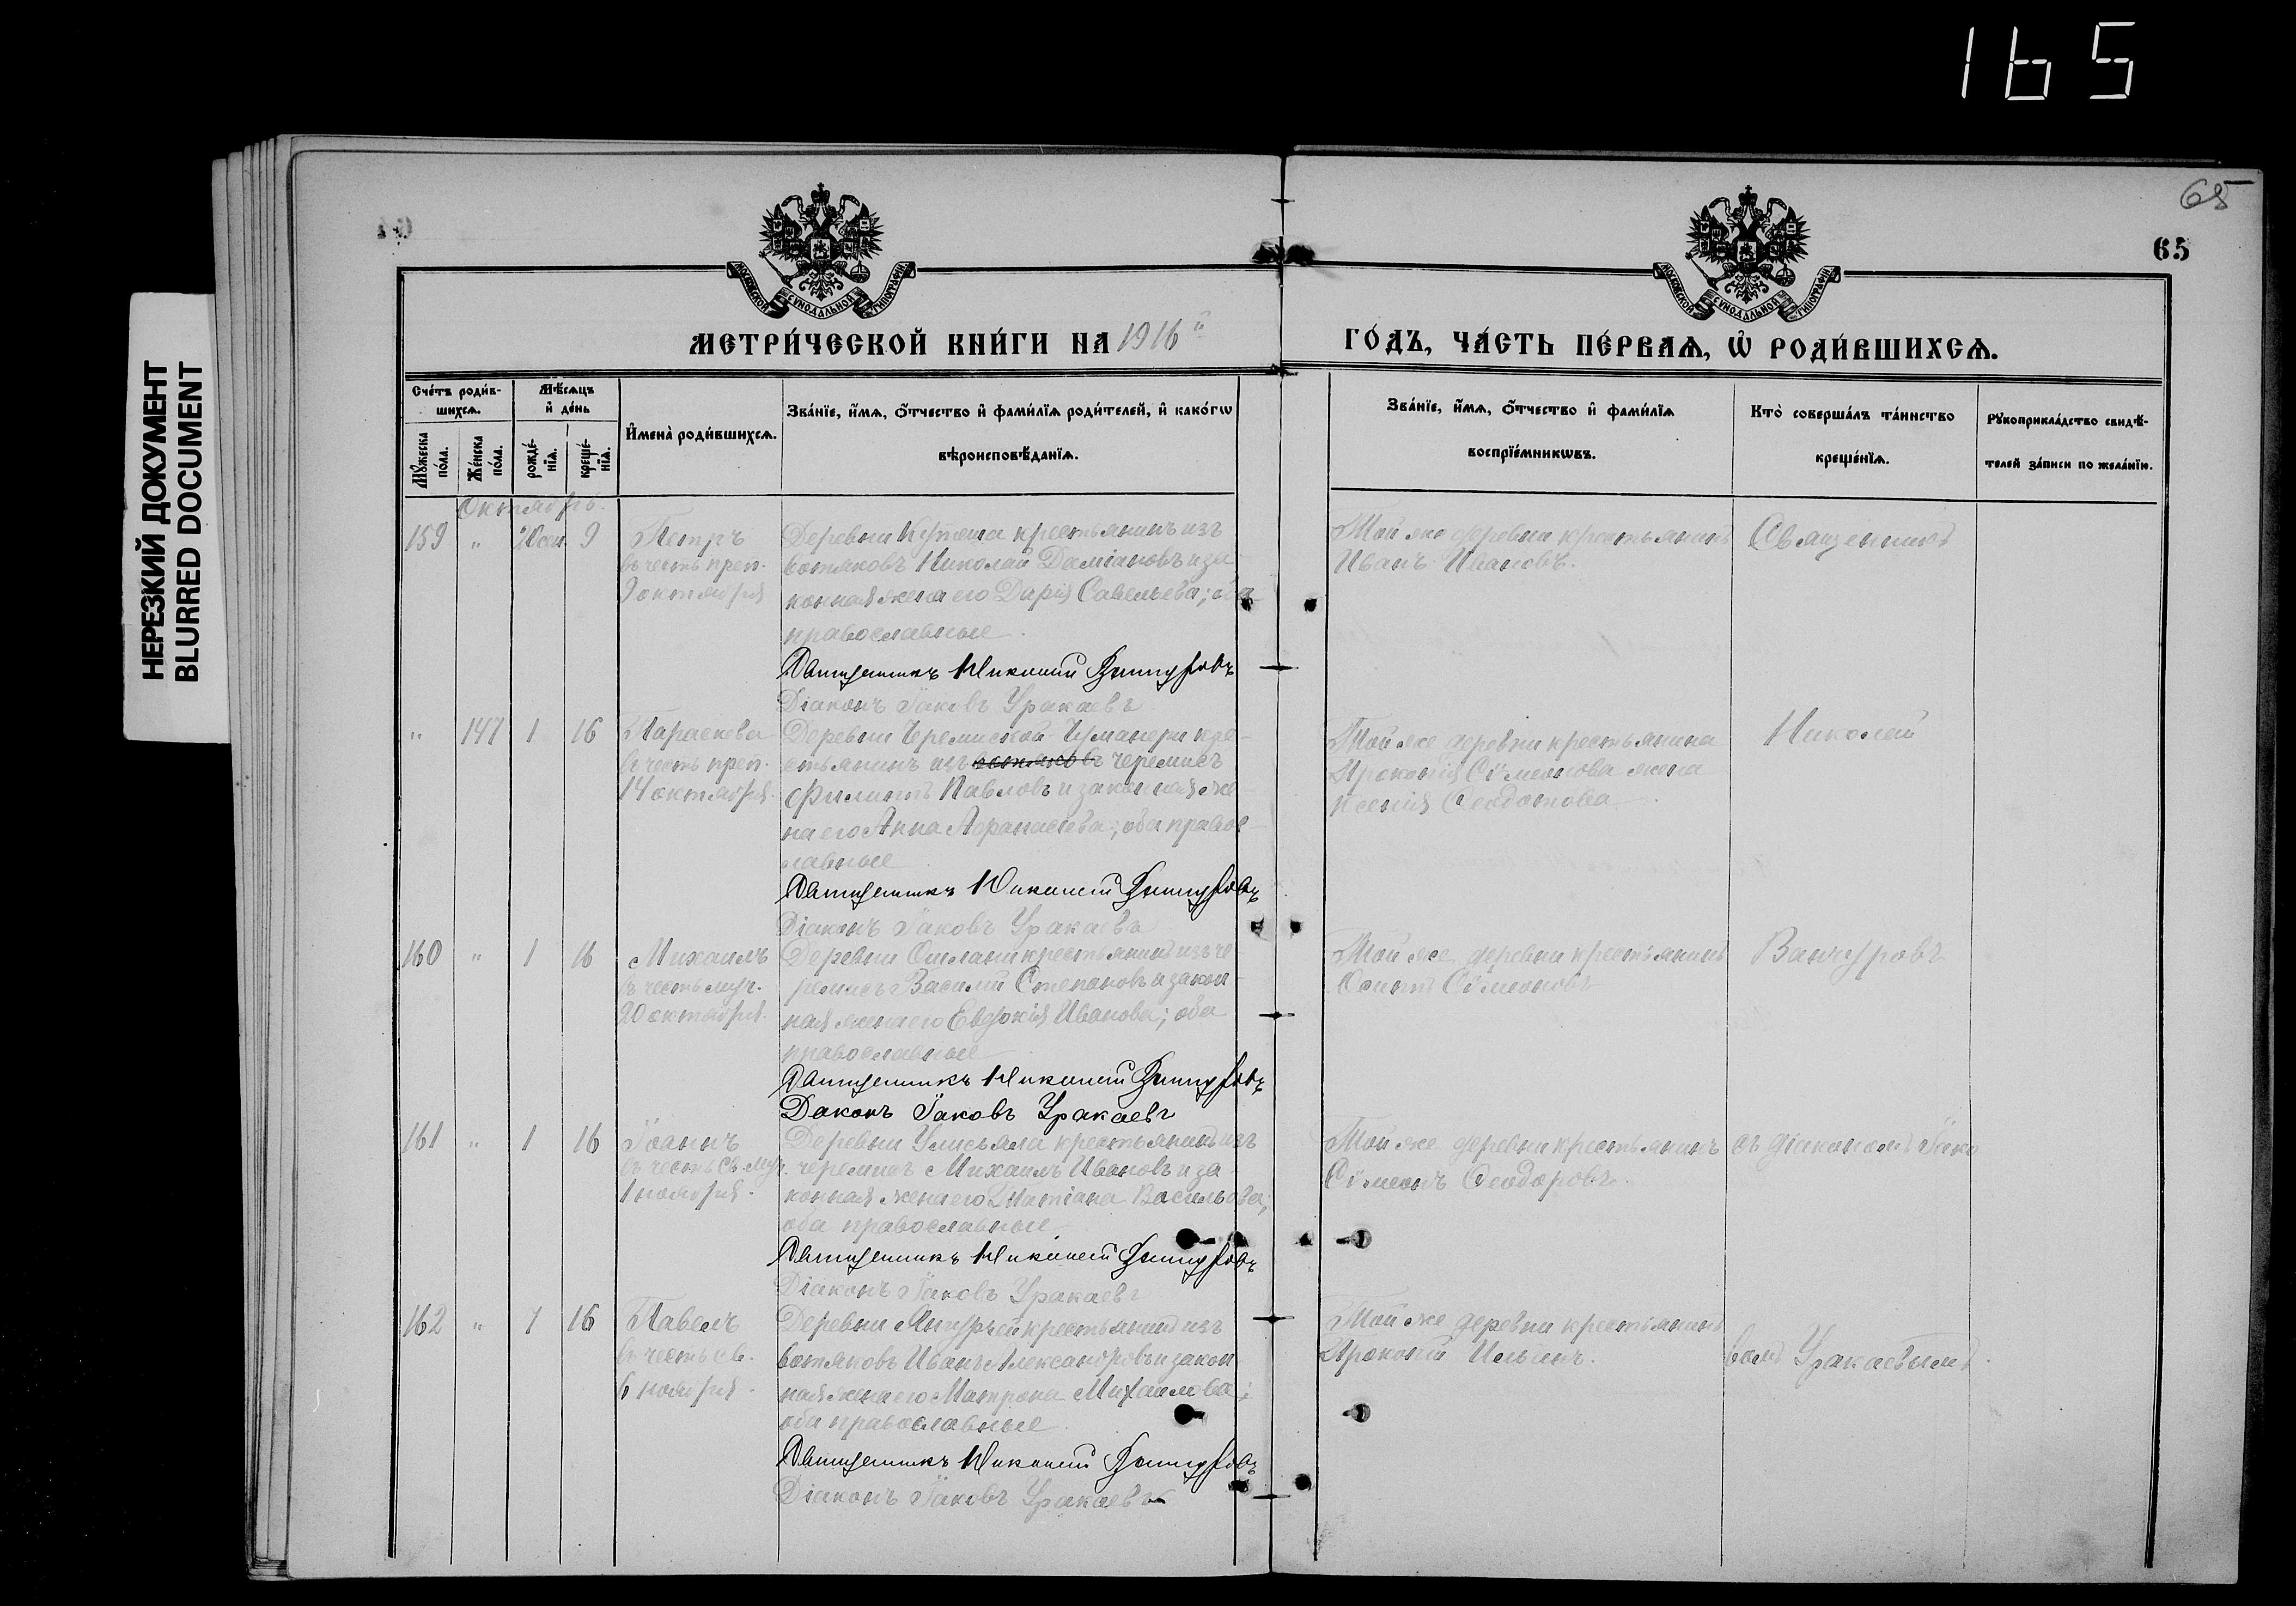 165
НЕРЕЗКИЙ ДОКУМЕНТ
BLURRED DOCUMENT
65
65
МОСКОВСКОЙ СѴНОДАЛЬНОЙ ТИПОГРАФІИ
МОСКОВСКОЙ СѴНОДАЛЬНОЙ ТИПОГРАФІИ
МЕТРИ́ЧЕСКОЙ КНИ́ГИ НА 1916й ГО́ДЪ, ЧА́СТЬ ПЕ́РВАѦ, Ѡ РОДИ́ВШИХСѦ.
Сче́тъ роди́в-
шихсѧ.
Мꙋ́жеска
по́ла.
Же́нска
по́ла.
Мѣ́сѧцъ
и҆ де́нь
рожде́-
нїѧ.
креще́-
нїѧ.
И҆мена̀ роди́вшихсѧ.
Зва́нїе, и҆́мѧ, ѻ҆́тчество и҆ фами́лїѧ роди́телей, и҆ како́гѡ
вѣроисповѣ́данїѧ.
Зва́нїе, и҆́мѧ, ѻ҆́тчество и҆ фами́лїѧ
воспрїе́мникѡвъ.
Кто̀ соверша́лъ та́инство
креще́нїѧ.
Рꙋкоприкла́дство свидѣ́-
телей за́писи по жела́нїю.
Октябрь.
159 " 20 сен. 9
Петръ
въ честь преп.
9 октября
Деревни крестьянинъ изъ
вотяковъ Николай Даміановъ и за
конная жена его Дарія Савельева; оба
православные.
Священникъ Николай Ванчуровъ
Діаконъ Іаковъ Уракаевъ
Той же деревни крестьянинъ
Иванъ Ивановъ.
Священникъ
" 147 1 16
Параскева
въ честь преп.
14 октября.
Деревни Черемисской кре-
стьянинъ изъ вотяковъ черемисъ
Филиппъ Павловъ и законная же-
на его Анна Афанасіева; оба правос-
лавные
Священникъ Николай Ванчуровъ
Діаконъ Іаковъ Уракаевъ
Той же деревни крестьянина
Прокопія Сѵмеонова жена
Ксенія Ѳеодотова.
Николай
160 " 1 16
Михаилъ
въ честь муч.
20 октября.
Деревни крестьянинъ изъ че
ремисъ Василій Степановъ и закон-
ная жена его Евдокія Иванова; оба
православные
Священникъ Николай Ванчуровъ
Діаконъ Іаковъ Уракаевъ
Той же деревни крестьянинъ
Осипъ Сѵмеоновъ
Ванчуровъ
161 " 1 16
Іоаннъ
въ честь св. муч.
1 ноября.
Деревни крестьянинъ изъ
черемисъ Михаилъ Ивановъ и за-
конная жена его Татіана Васильева;
оба православные
Священникъ Николай Ванчуровъ
Діаконъ Іаковъ Уракаевъ
Той же деревни крестьянинъ
Сѵмеонъ Ѳеодоровъ.
съ діакономъ Іако
162 " 7 16
Павелъ
въ честь св.
6 ноября.
Деревни крестьянинъ изъ
вотяковъ Иванъ Александровъ и закон
ная жена его Матрона Михаилова;
оба православные
Священникъ Николай Ванчуровъ
Діаконъ Іаковъ Уракаевъ
Той же деревни крестьянинъ
Прокопій Ильинъ.
вомъ Уракаевымъ.